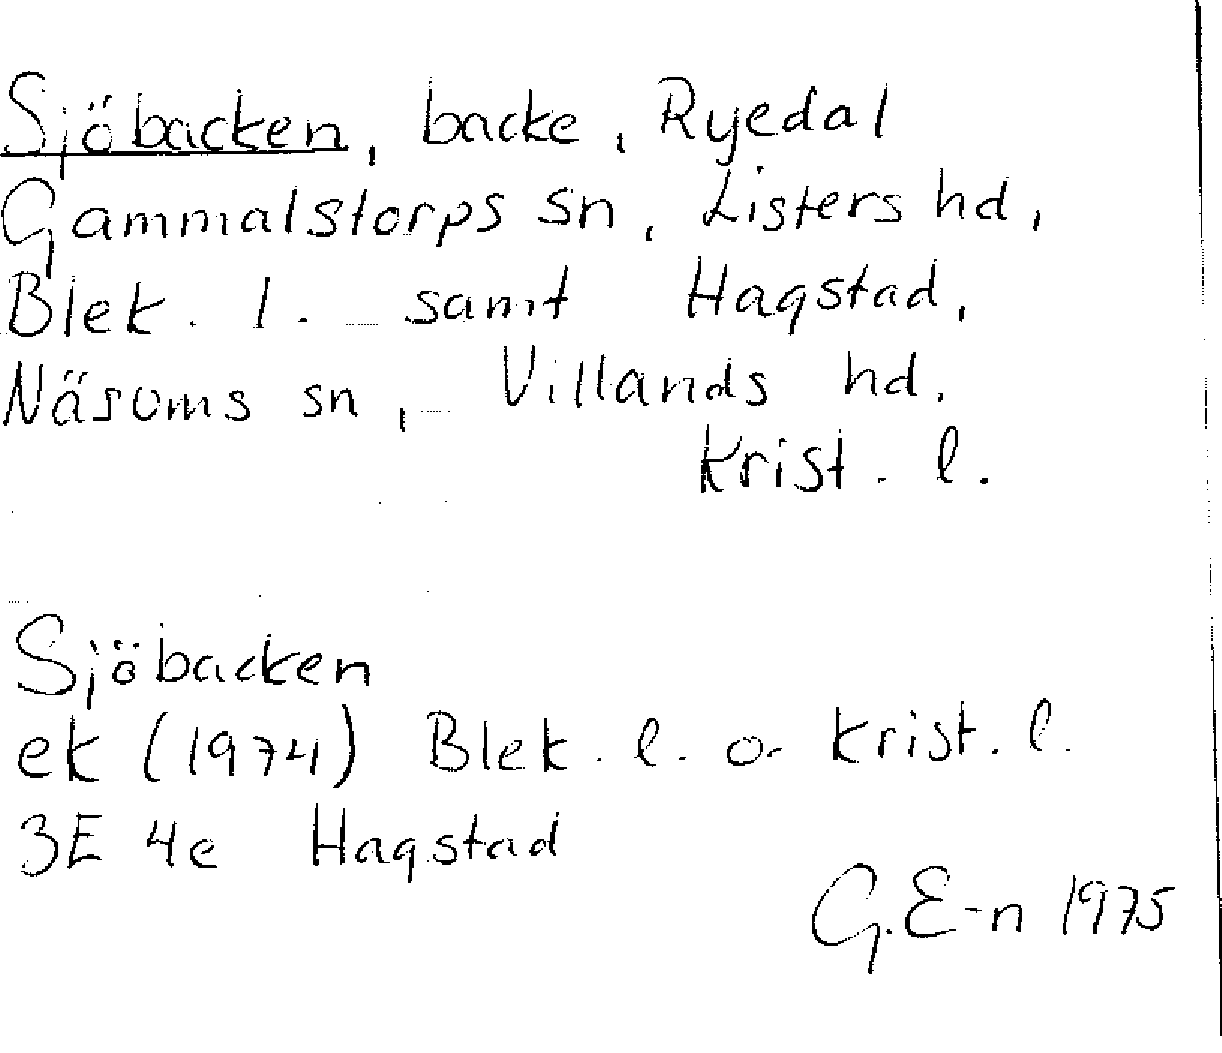 Sjöbacken, backe, Ryedal
Gammalstorps sn, Listers hd,
Blek. l. samt Hagstad,
Näsums sn, Villands hd.
Krist. l.
Sjöbacken
ek (1974) Blek. l. o Krist. l.
3E 4e Hagstad
G. E-n 1975